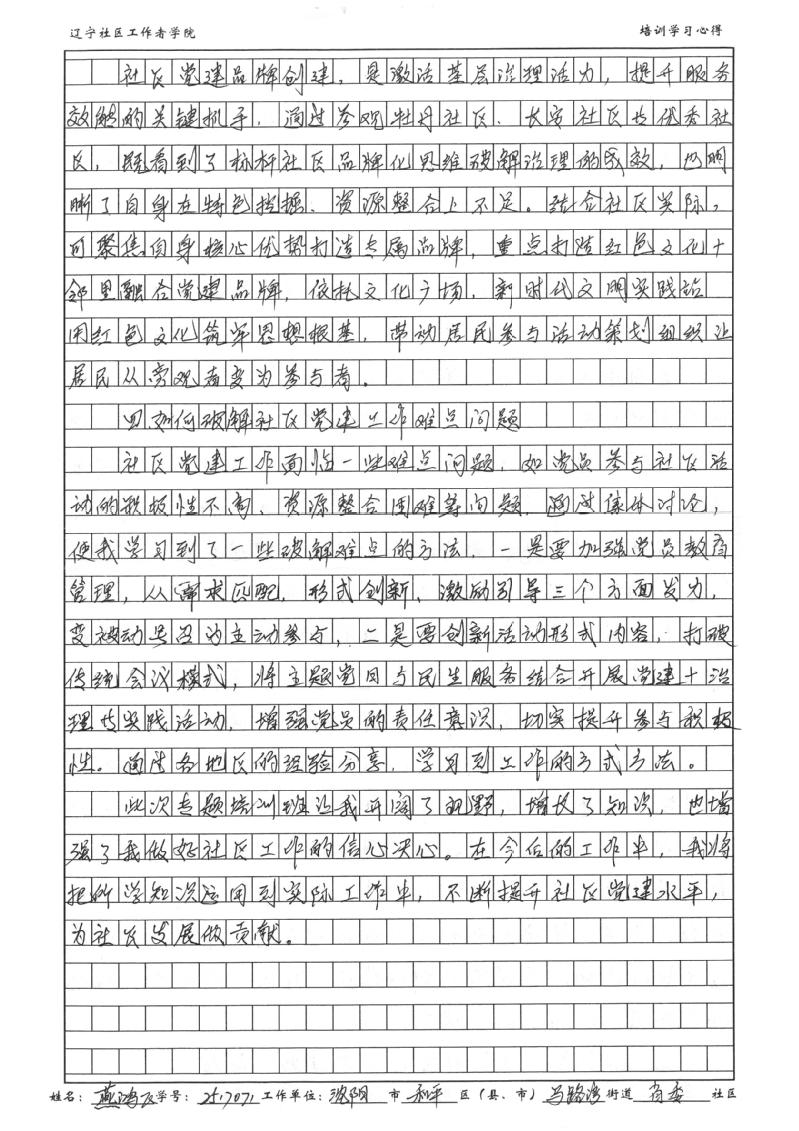 辽宁社区工作者学院 培训学习心得
社区党建品牌创建，是激活基层治理活力，提升服务
效能的关键抓手，通过参观牡丹社区、长安社区等优秀社
区，既看到了标杆社区品牌化思维破解治理的成效，也明
晰了自身在特色挖掘、资源整合上不足。结合社区实际，
可聚焦自身核心优势打造专属品牌，重点打造红色文化+
邻里融合党建品牌，依托文化广场，新时代文明实践站
用红色文化筑牢思想根基，带动居民参与活动策划组织让
居民从旁观者变为参与者。
四如何破解社区党建工作难点问题
社区党建工作面临一些难点问题，如党员参与社区活
动的积极性不高、资源整合困难等问题，通过集体讨论，
使我学习到了一些破解难点的方法，一是要加强党员教育
管理，从需求匹配，形式创新、激励引导三个方面发力，
变被动号召为主动参与，二是要创新活动形式内容，打破
传统会议模式，将主题党日与民生服务结合开展党建+治
理等实践活动，增强党员的责任意识，切实提升参与积极
性。通过各地区的经验分享，学习到工作的方式方法。
此次专题培训班让我开阔了视野，增长了知识，也增
强了我做好社区工作的信心决心。在今后的工作中，我将
把所学知识运用到实际工作中，不断提升社区党建水平，
为社区发展做贡献。
姓名：燕鸿 学号：2517071 工作单位：沈阳 市 和平 区（县、市）马路湾 街道 社区